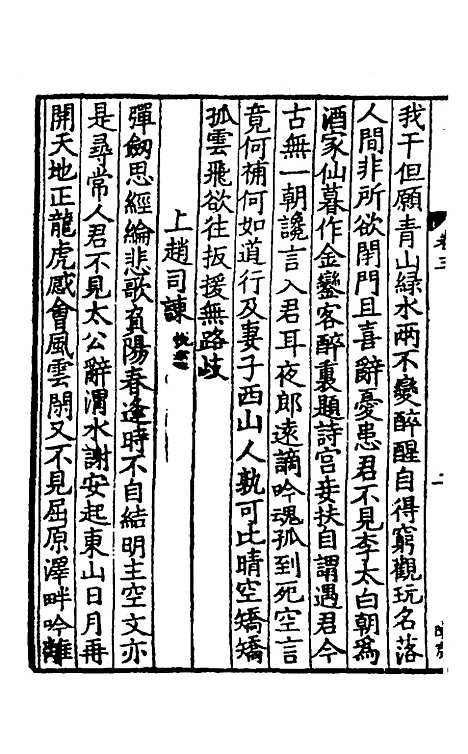 我干但願青山緑水兩不變醉醒自得窮觀玩名落
人間非所欲閉門且喜辭憂患君不見李太白朝爲
酒家仙暮作金鑾客醉裏題詩宫妾扶自謂遇君今
古無一朝讒言入君耳夜郎遠謫吟魂孤到死空言
竟何補何如道行及妻子西山人孰可比晴空矯矯
孤雲飛欲往扳援無路歧
上趙司諫
彈劒思經綸悲歌負陽春逢時不自結明主空文亦
是尋常人君不見太公辭渭水謝安起東山日月再
開天地正龍虎感會風雲閒又不見屈原澤畔吟離
卷三
二